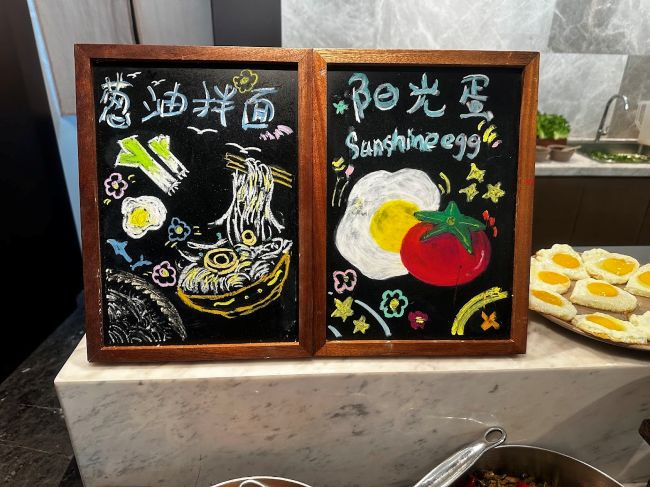 葱油拌面
阳光蛋
Sunshine egg